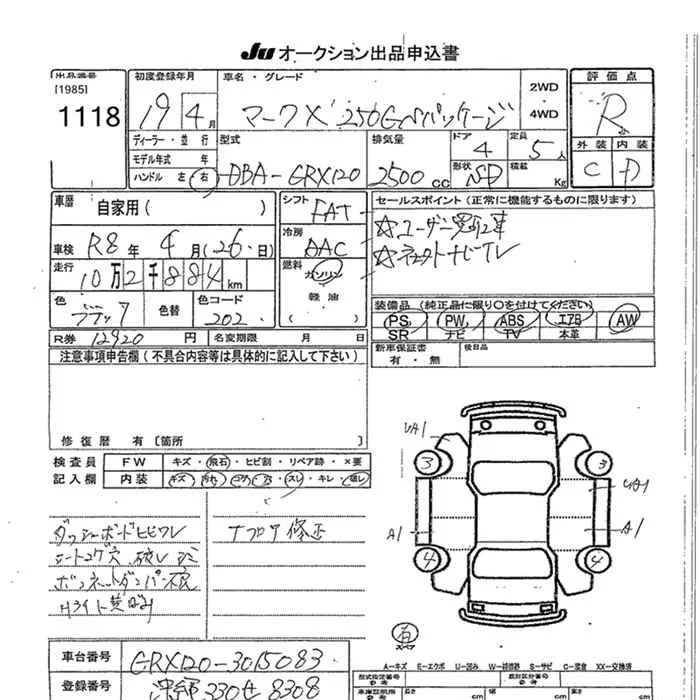 JU オークション出品申込書
出品番号
[1985]
1118
初度登録年月
19 年 4 月
車名・グレード
マークX 250G
2WD
4WD
評価点
R
外装 内装
C D
ディーラー・並行
モデル年式 年
ハンドル 左・右
型式
DBA-GRX120
排気量
2500 cc
ドア
4
形状
定員
5人
積載
Kg
車歴
自家用 ( )
車検
R8 年 4 月 (26・日)
走行
10万2千884 km
色
ブラック
色替
色コード
202
シフト
FAT
冷房
AAC
燃料
ガソリン
軽油
( )
セールスポイント(正常に機能するものに限ります)
☆ユーザー買取車
装備品(純正品に限り○を付けてください)
PS PW ABS エアB AW
SR ナビ TV 本革
新車保証書
有・無
後日品
R券 12920 円
名変期限 月 日
注意事項申告欄(不具合内容等は具体的に記入して下さい)
修復歴 有 〔箇所
検査員
記入欄
FW キズ・飛石・ヒビ割・リペア跡・×要
内装 キズ・汚れ・コゲ・穴・スレ・キレ・
ダッシュボードヒビワレ
シートコゲ穴
Hライト黄ばみ
修正
UA1
3
3
UA1
A1
A1
4
4
右
スペア
A-キズ E-エクボ U-凹み W-補修跡 S-サビ C-腐食 XX-交換済
車台番号
GRX120-3015083
登録番号
330せ8308
型式指定番号
参考
類別区分番号
参考
長さ
cm
幅
cm
高さ